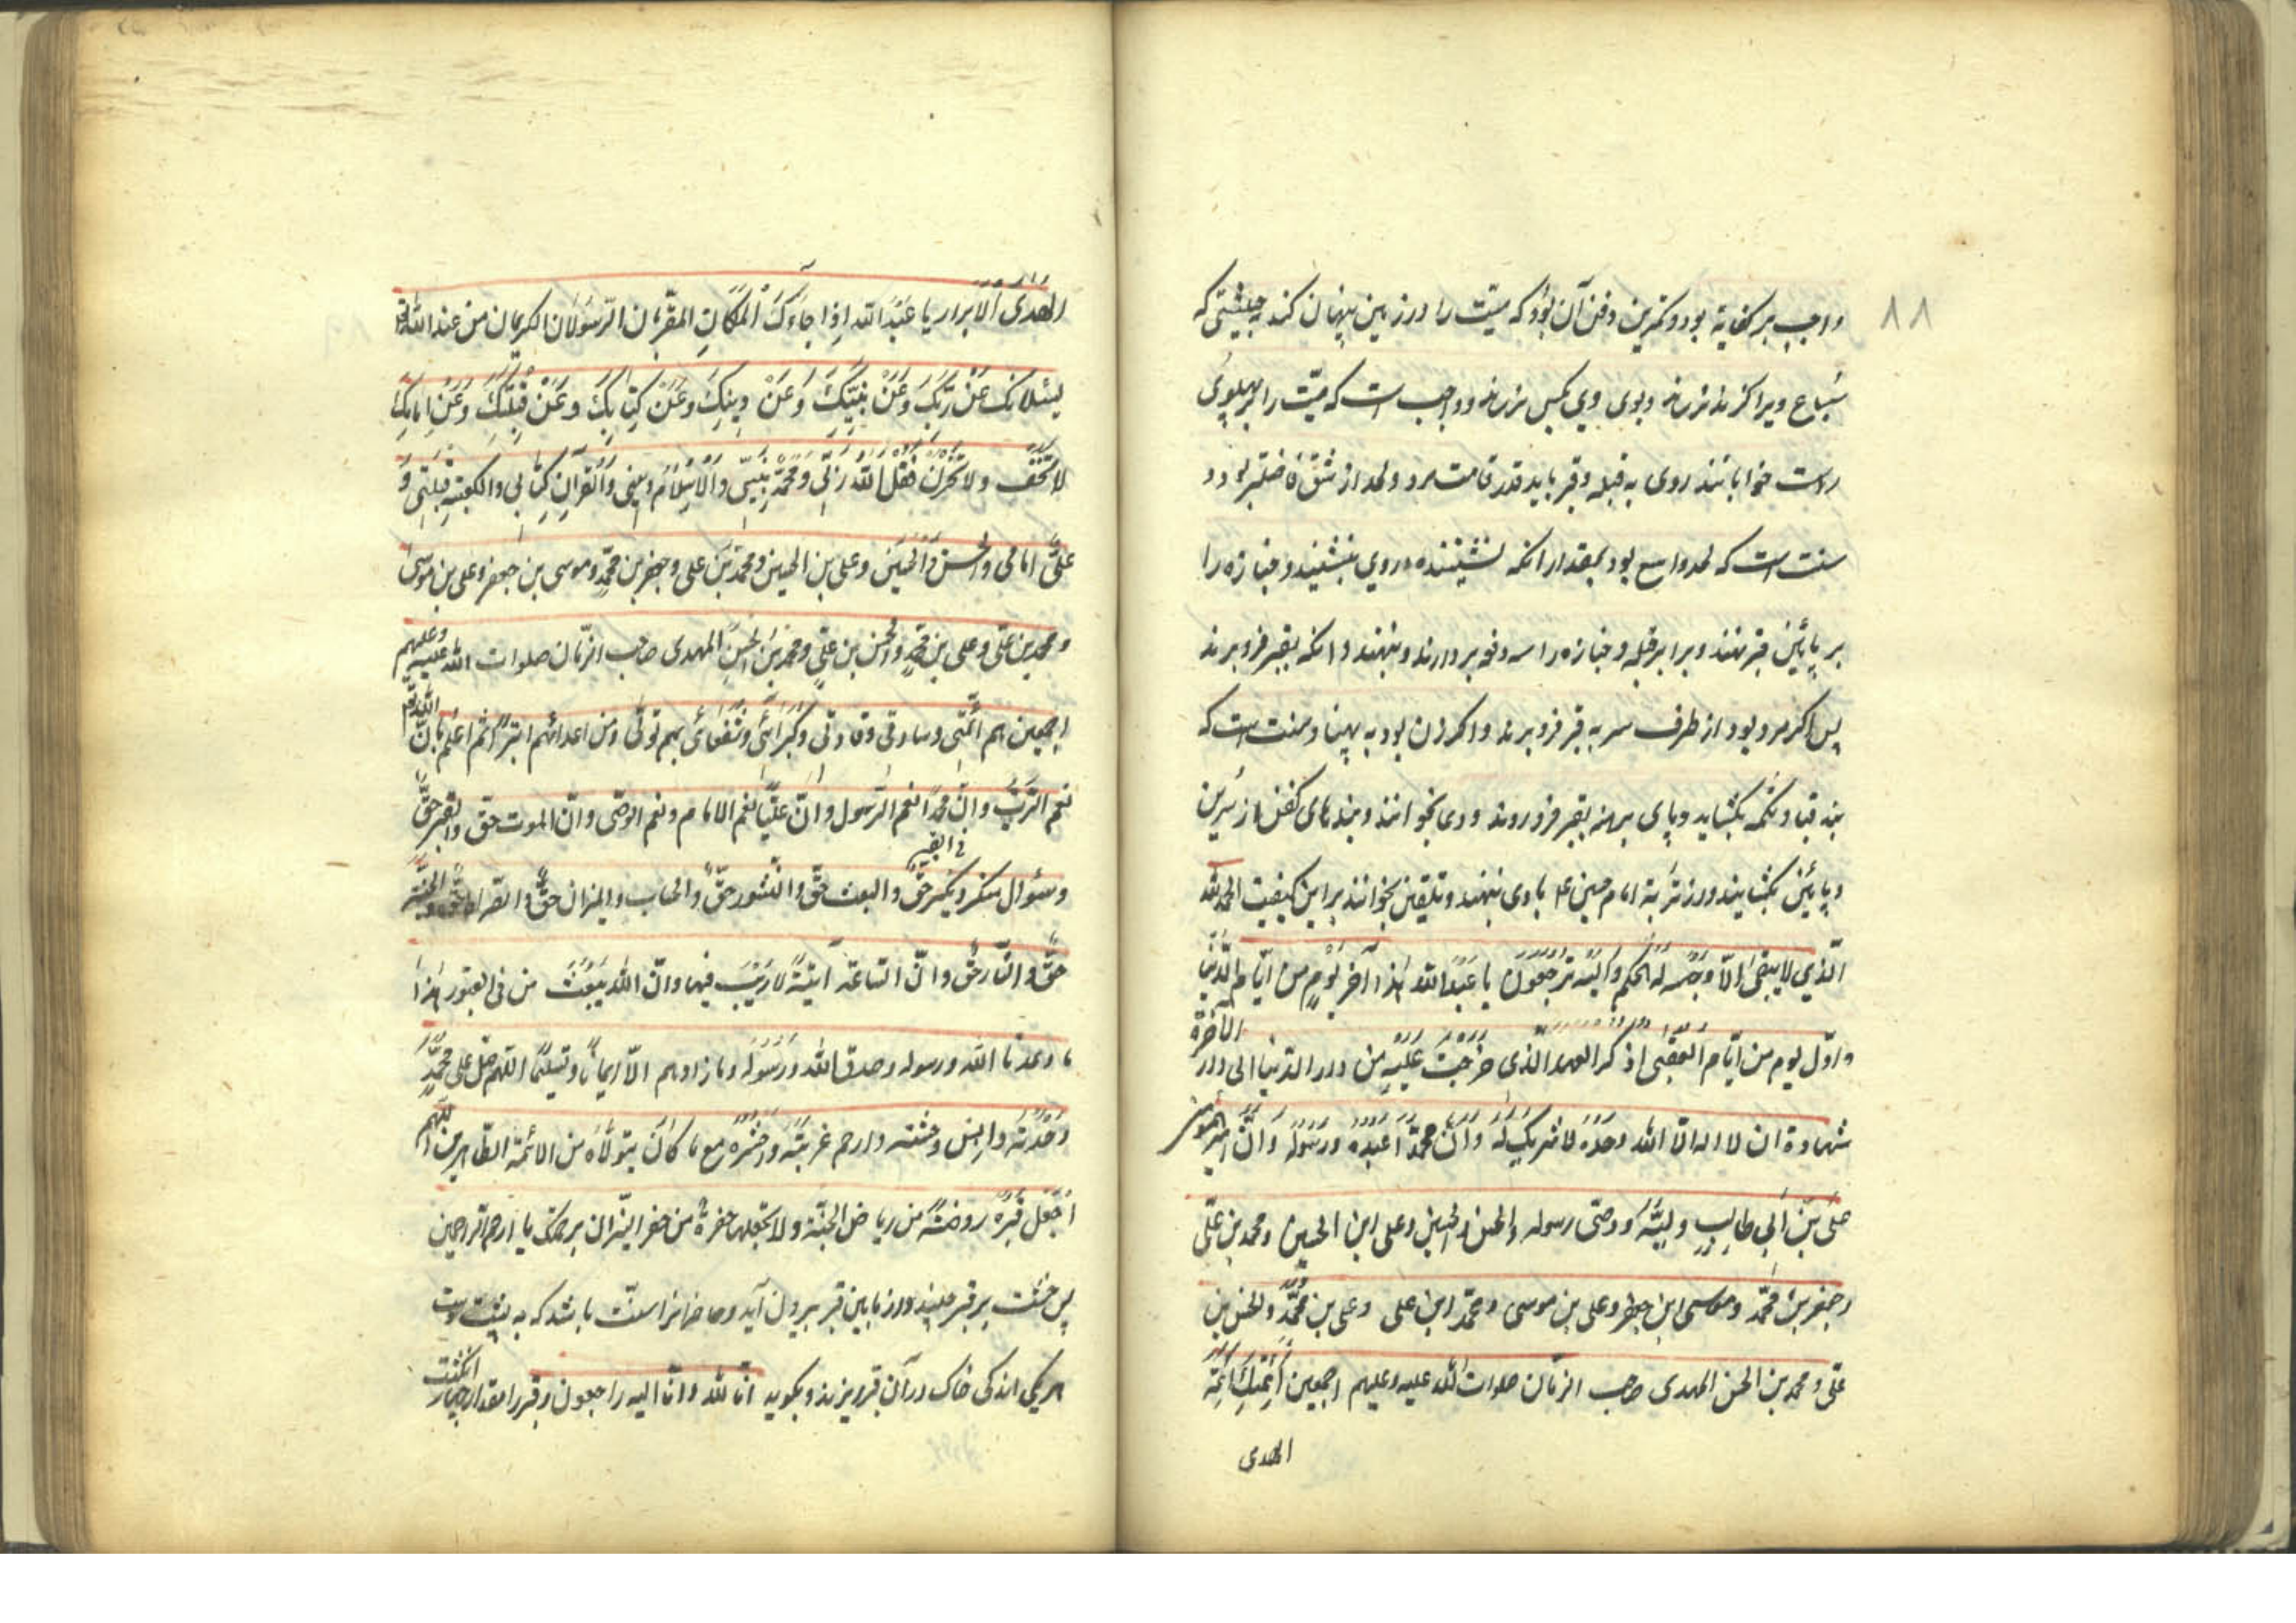 ۸۸
واجب بر کفایة بود و کمترین دفن آن بود که میّت را در زمین پنهان کنند بحیثیتی که
سباع ویرا گزند نرساند و بوی وی بکس نرساند و واجب است که میّت را بر پهلوی
راست خوابانند روی به قبله و قبر باید قدر قامت مرد و لحد از شق فاضلتر بود و
سنت است که لحد واسع بود بمقدار آنکه نشیننده در وی بنشیند و جنازه را
بر پائین قبر نهند و برابر قبله و جنازه را سه دفعه بردارند و بنهند و آنکه بقبر فرو برند
پس اگر مرد بود از طرف سر به قبر فرو برند و اگر زن بود به پهنا و سنت است که
بند قبا و تکمه بگشاید و پای برهنه بقبر فرو روند و دعا بخوانند و بندهای کفن از سرین
و پائین بگشایند و از تربة امام حسین ع با وی بنهند و تلقین بخوانند بر این کیفیت الحمد لله
الّذي لا يبقى الّا وجهه له الحکم و اليه ترجعون يا عبد الله هذا آخر يوم من ايّام الدّنيا
و اوّل يوم من ايّام العقبى اذكر العهد الّذى خرجت عليه من دار الدّنيا الى دار الآخرة
شهادة ان لا اله الّا الله وحده لا شريك له و انّ محمّدا عبده و رسوله و انّ امير المؤمنين
علي بن ابي طالب وليّه و وصّى رسوله و الحسن و الحسين و على ابن الحسين و محمد بن علّى
و جعفر بن محمّد و موسى ابن جعفر و على بن موسى و محمّد ابن على و على بن محمّد و الحسن بن
علّى و محمد بن الحسن المهدى صاحب الزمان صلوات الله عليه و عليهم اجمعين ائمّتك ائمّة
الهدى
الهدى الابرار يا عبد الله اذا جاءك الملكان المقرّبان الرّسولان الكريمان من عند الله
يسئلانك عن ربّك و عن نبيّك و عن دينك و عن كتابك و عن قبلتك و عن امامك
لا تخف و لا تحزن فقل الله ربّى و محمّد نبيّى و الاسلام دينى و القرآن كتابى و الكعبة قبلتى و
علىّ امامى و الحسن و الحسين و على بن الحسين و محمد بن على و جعفر بن محمّد و موسى بن جعفر و على بن موسى
و محمد بن علّى و على بن محمّد و الحسن بن علّى و محمد بن الحسن المهدى صاحب الزمان صلوات الله عليه و عليهم
اجمعين هم ائمّتى و سادتى و قادتى و كبرائى و شفعائى بهم تولّى و من اعدائهم اتبرّء ثم اعلم بانّ الله
نعم الرّبّ و انّ محمّدا نعم الرّسول و انّ عليّا نعم الامام و نعم الوصّى و انّ الموت حق و القبر حقّ
و سئوال منكر و نكير فى القبر حقّ و البعث حقّ و النّشور حقّ و الحساب و الميزان حقّ و الصّراط حقّ و الجنّة
حقّ و النّار حقّ و انّ السّاعة آتية لا ريب فيها و انّ الله يبعث من فى القبور هذا
ما وعدنا الله و رسوله و صدق الله و رسوله و ما زادهم الّا ايمانا و تسليما اللهم صلّ على محمّد
وحدته و آنس وحشته و ارحم غربته و احشره مع ما كان يتولّاه من الائمّة الطّاهرين اللهم
اجعل قبره روضة من رياض الجنّة و لا تجعلها حفرة من حفر النّيران برحمتك يا ارحم الراحمين
پس خشت بر قبر چیند و از پایین قبر بیرون آید و حاضرانرا سنّت باشد که به پشت دست
هریکی اندکی خاک در آن قبر ریزند و بگوید انّا لله و انّا اليه راجعون و قبر را مقدار چهار انگشت